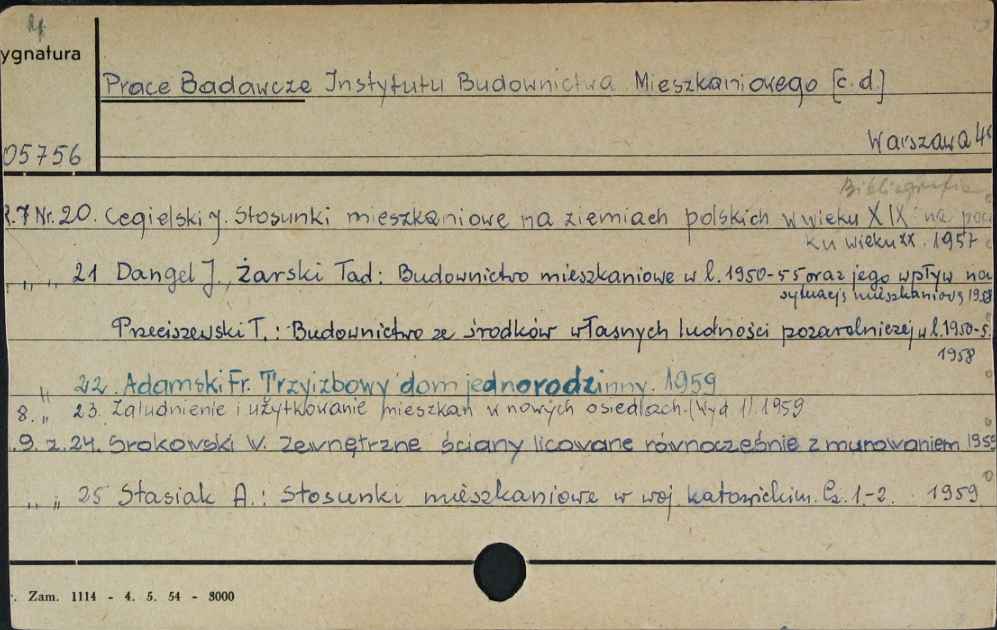 ygnatura
Prace Badawcze Instytutu Budownictwa Mieszkaniowego [c.d.]
05756
Warszawa 49
Bibliografia
R.7 Nr. 20. Cegielski J. Stosunki mieszkaniowe na ziemiach polskich w wieku XIX na począ
ku wieku XX. 1957
" " 21 Dangel J., Żarski Tad: Budownictwo mieszkaniowe w l. 1950-55 oraz jego wpływ na
sytuację mieszkaniową 1958
Przeciszewski T.: Budownictwo ze środków własnych ludności pozarolniczej w l. 1950-5.
1958
" 22. Adamski Fr. Trzyizbowy dom jednorodzinny. 1959
8. " 23. Zaludnienie i użytkowanie mieszkań w nowych osiedlach. (Wyd 1) 1959
.9. z. 24. Srokowski W. Zewnętrzne ściany licowane równocześnie z murowaniem 1959
" " 25 Stasiak A.: Stosunki mieszkaniowe w woj. katowickim. Cz. 1.-2. 1959
. Zam. 1114 - 4. 5. 54 - 8000